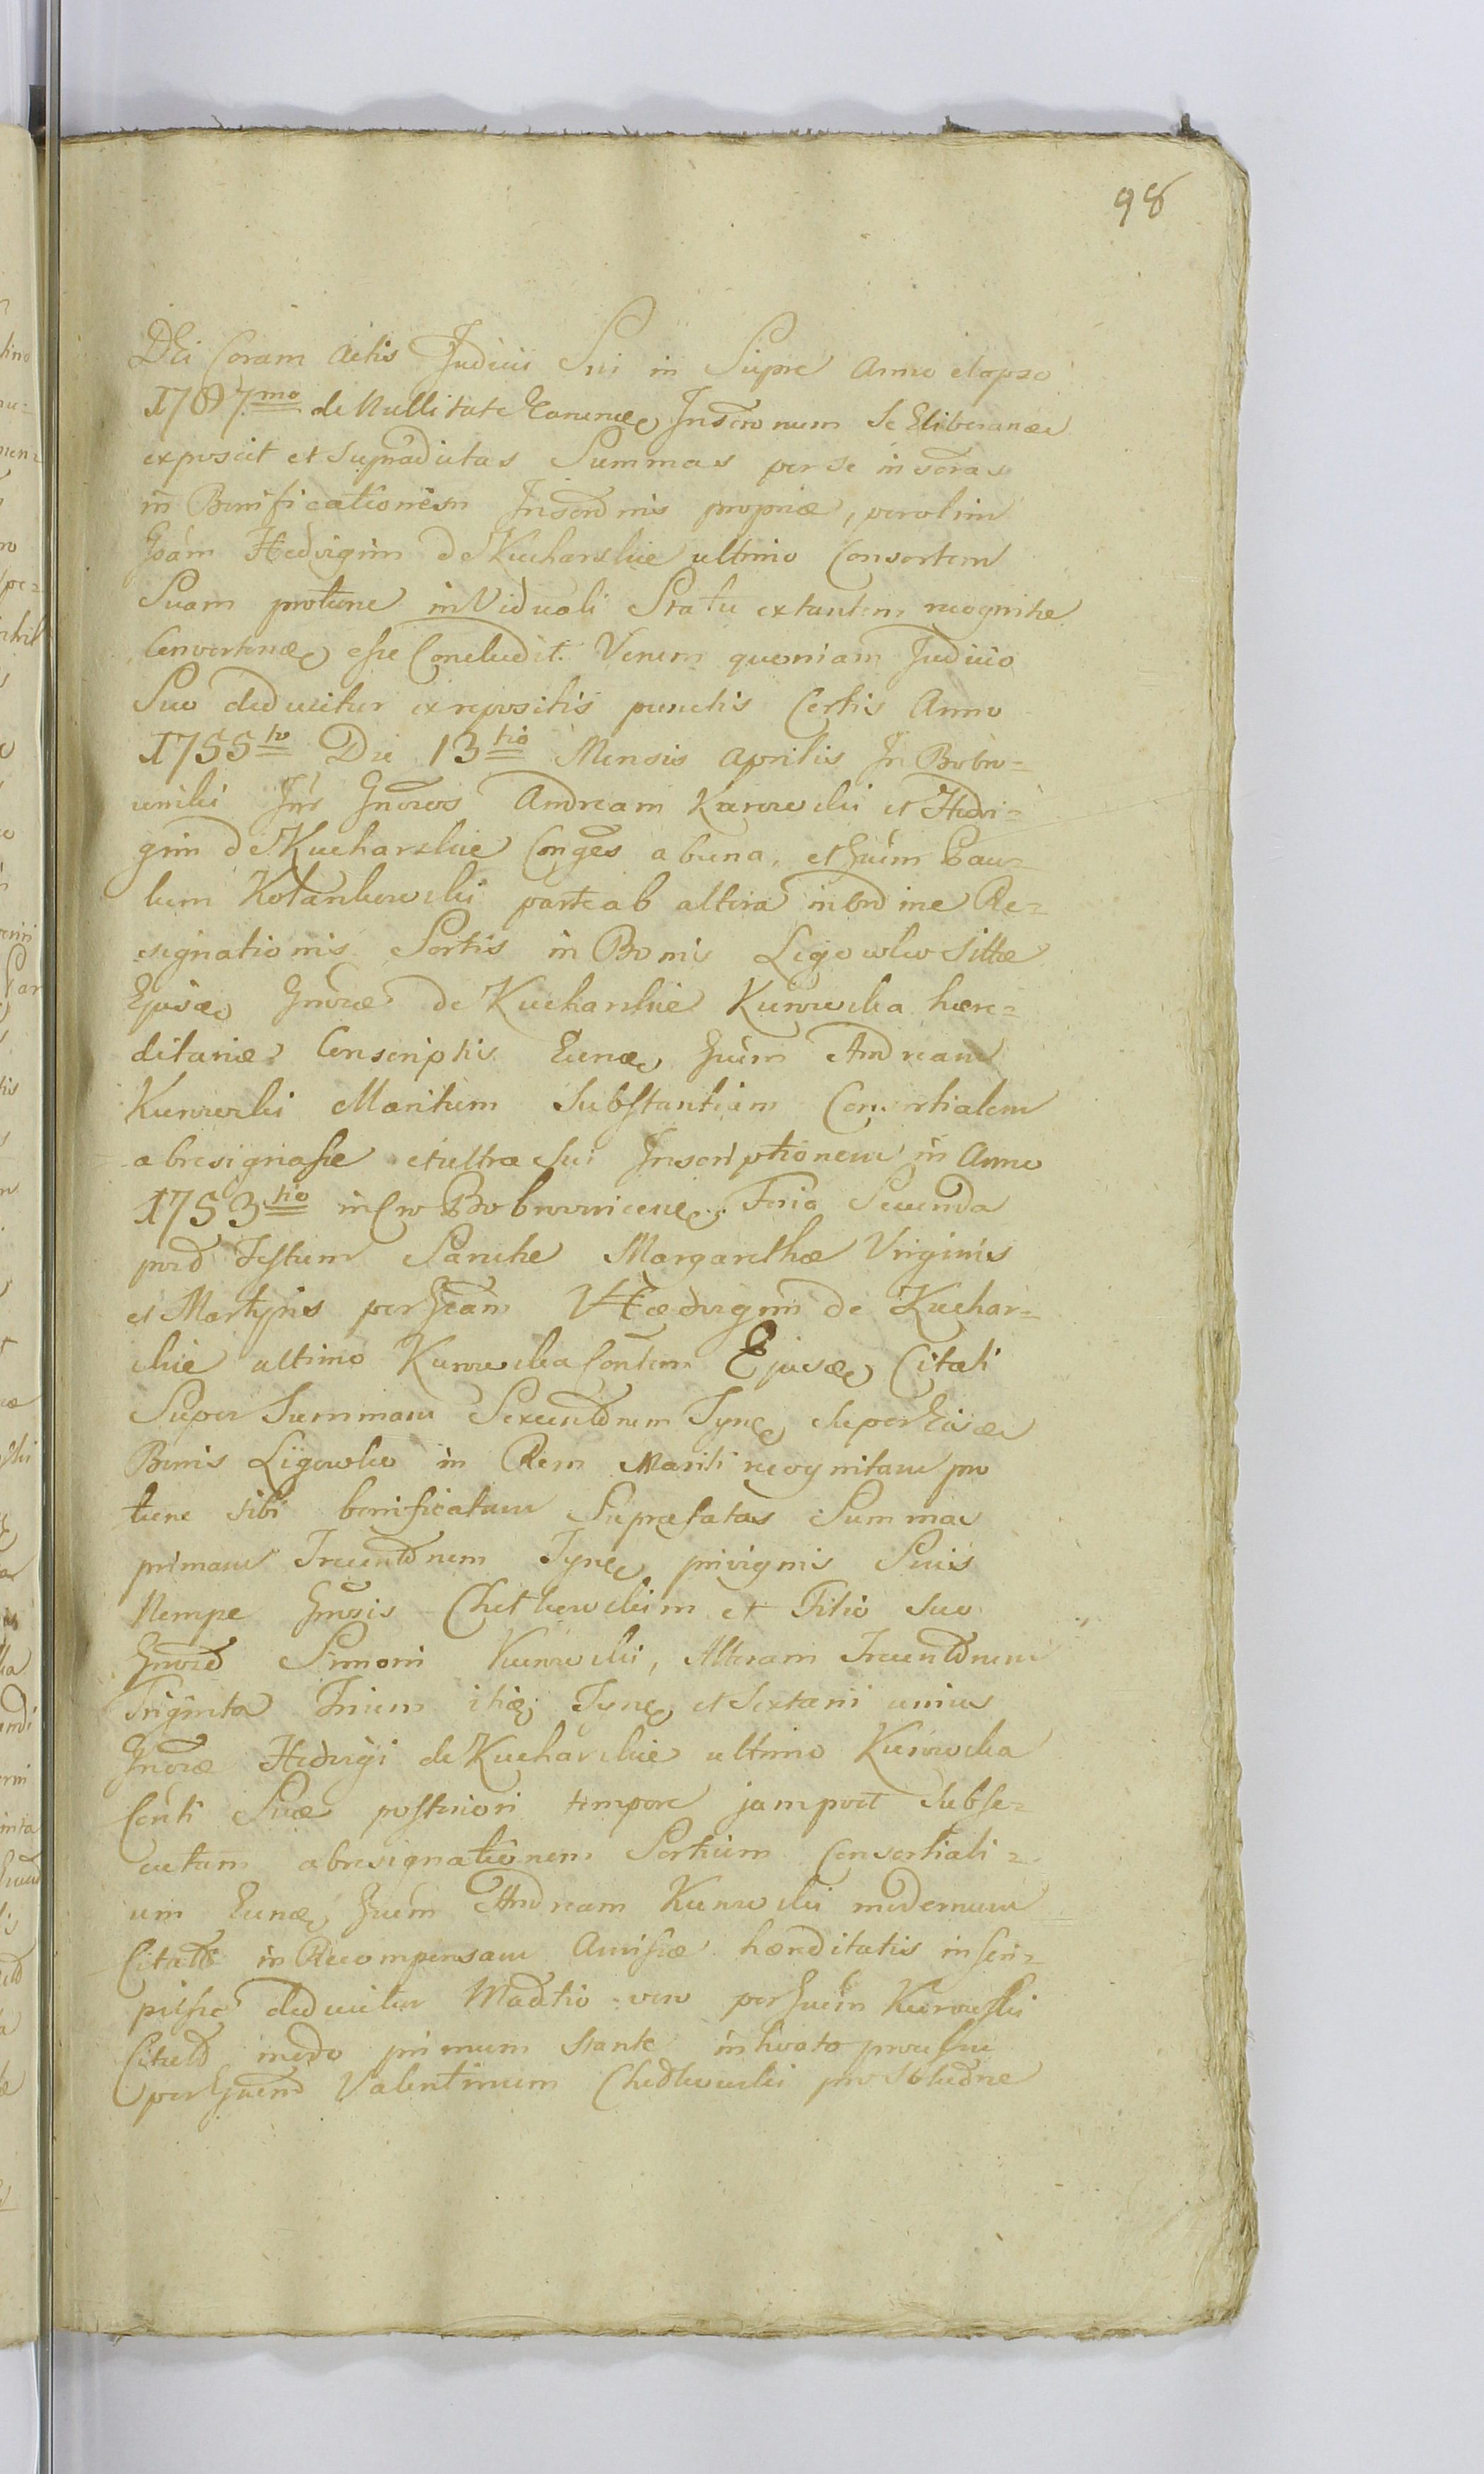 98
DEi Coram Actis Judicii Sui in Lipno Anno elapso
1767mo de Nullitate Earunde Inscronum se Eliberari
exposcit et Supradictas Summas per se inscras
in Bonificationem Inscronis propriæ, per olim
Gsam Hedvigim de Kucharskie ultimo Consortem
Suam protunc in Viduali Statu extantem recognitæ
Convertendas esse Concludit. Verum quoniam Judicio
Suo deducitur ex repositis punctis Certis Anno
1755to Die 13tio Mensis Aprilis In Bobro-
wniki Inter Gnosos Andream Kurowski et Hedvi-
gim de Kucharskie Conges ab una, et Gsum Pau-
lum Kotarkowski parte ab altera in Ordine Re-
signationis Sortis in Bonis Ligowko Sittæ
Ejusde Gnosæ de Kucharskie Kurowska hære-
ditariæ Conscriptis Eunde Gsum Andream
Kurowski Maritum Substantiam Consortialem
abresignasse et ultra sui Inscriptionem in Anno
1753tio in Cro Bobrownicense Feria Secunda
post Festum Sanctæ Margarethæ Virginis
et Martyris per Gsam Hædvigim de Kuchar-
skie ultimo Kurowska Contem Ejusde Citati
Super Summam Sexcentorum Tynf super Eisde
Bonis Ligowko in Rem Mariti recognitam pro
tunc sibi bonificatam Suprafatas Summas
primam Trecentorum Tynf privignis Suis
Nempe Gnosis Chełkowskim et Filio suo
Gnoso Simoni Kurowski, Alteram Trecentorum
Triginta Trium itide Tynf et Sextarii unius
Gnosæ Hedvigi de Kucharskie ultimo Kurowska
Conti Suæ posteriori tempore jam post Subse-
cutam abresignationem Sortium Consortiali-
um Eunde Gsum Andream Kurowski modernum
Citatum in Recompensam Amissæ hæreditatis inscri-
psisse deducitur vero per Gsum Kurowski
Citatum modo primum stante processu
per Gsum Valentinum